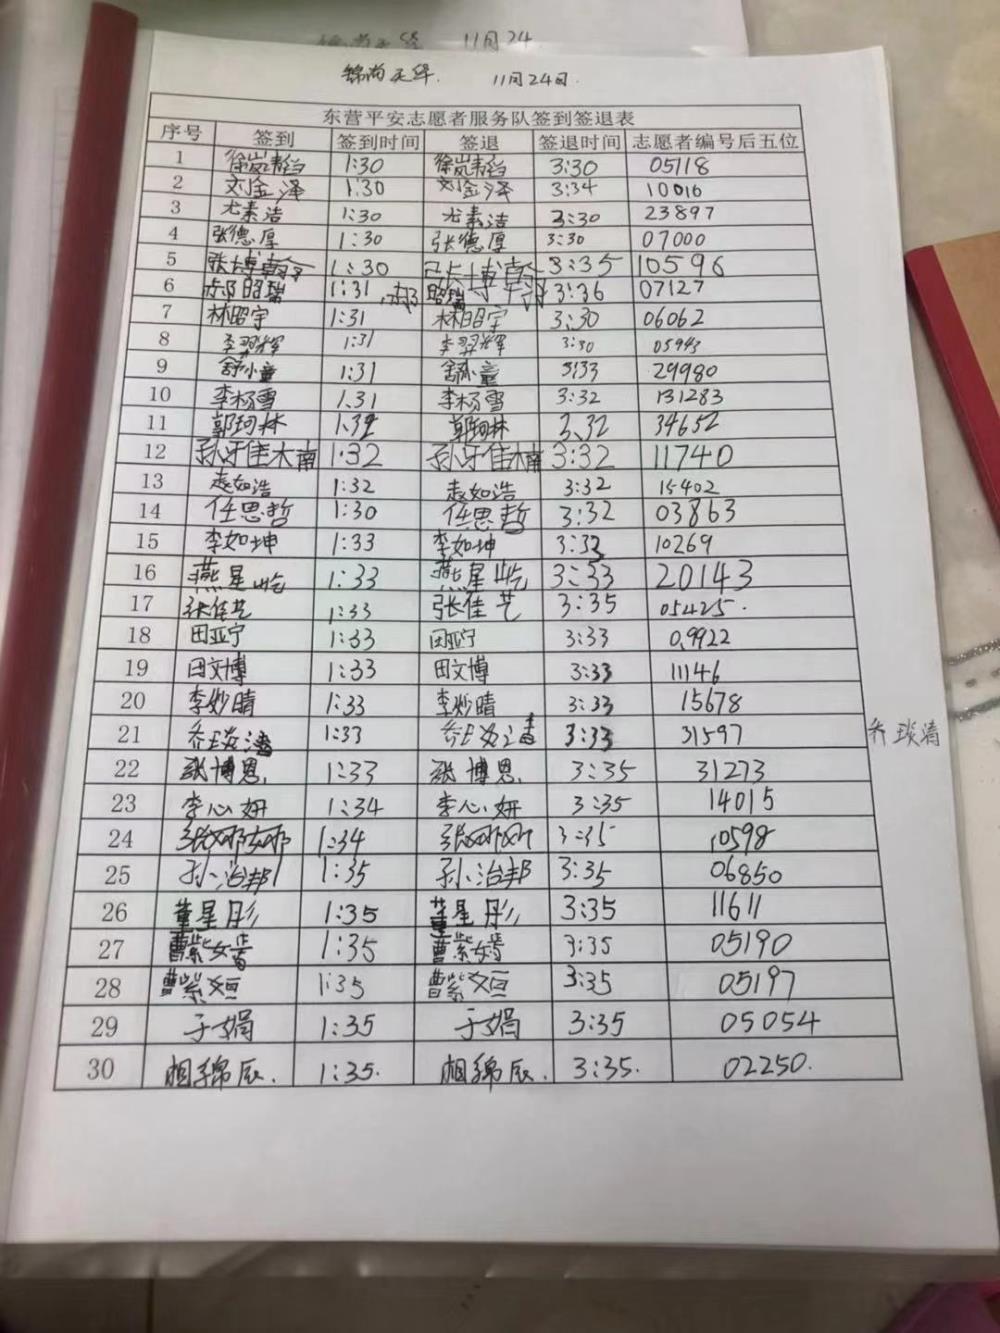 锦尚天华. 11月24日.
东营平安志愿者服务队签到签退表
序号 签到 签到时间 签退 签退时间 志愿者编号后五位
1 徐岚韬 1:30 徐岚韬 3:30 05118
2 刘金泽 1:30 刘金泽 3:34 10016
3 尤素洁 1:30 尤素洁 3:30 23897
4 张德厚 1:30 张德厚 3:30 07000
5 张博翰 1:30 张博翰 3:35 10596
6 郝昭瑞 1:31 郝昭瑞 3:36 07127
7 林昭宇 1:31 林昭宇 3:30 06062
8 李羿辉 1:31 李羿辉 3:30 05943
9 舒小童 1:31 舒小童 3:33 29980
10 李杨雪 1.31 李杨雪 3:32 131283
11 郭珂林 1.32 郭珂林 3.32 34652
12 孙牙佳楠 1:32 孙牙佳楠 3:32 11740
13 赵如浩 1:32 赵如浩 3:32 15402
14 任思哲 1:30 任思哲 3:32 03863
15 李如坤 1:33 李如坤 3:33 10269
16 燕星屹 1:33 燕星屹 3:33 20143
17 张佳艺 1:33 张佳艺 3:35 05425.
18 田亚宁 1:33 田亚宁 3:33 0,9922
19 田文博 1:33 田文博 3:33 11146
20 李妙晴 1:33 李妙晴 3:33 15678
21 乔琰清 1:33 乔琰清 3:33 31597 乔琰清
22 张博恩 1:33 张博恩 3:35 31273
23 李心妍 1:34 李心妍 3:35 14015
24 1:34 3:35 10598
25 孙治邦 1:35 孙治邦 3:35 06850
26 董星彤 1:35 董星彤 3:35 11611
27 曹紫嫣 1:35 曹紫嫣 3:35 05190
28 曹紫 1:35 曹紫 3:35 05197
29 于娟 1:35 于娟 3:35 05054
30 相锦辰. 1:35. 相锦辰. 3:35. 02250.